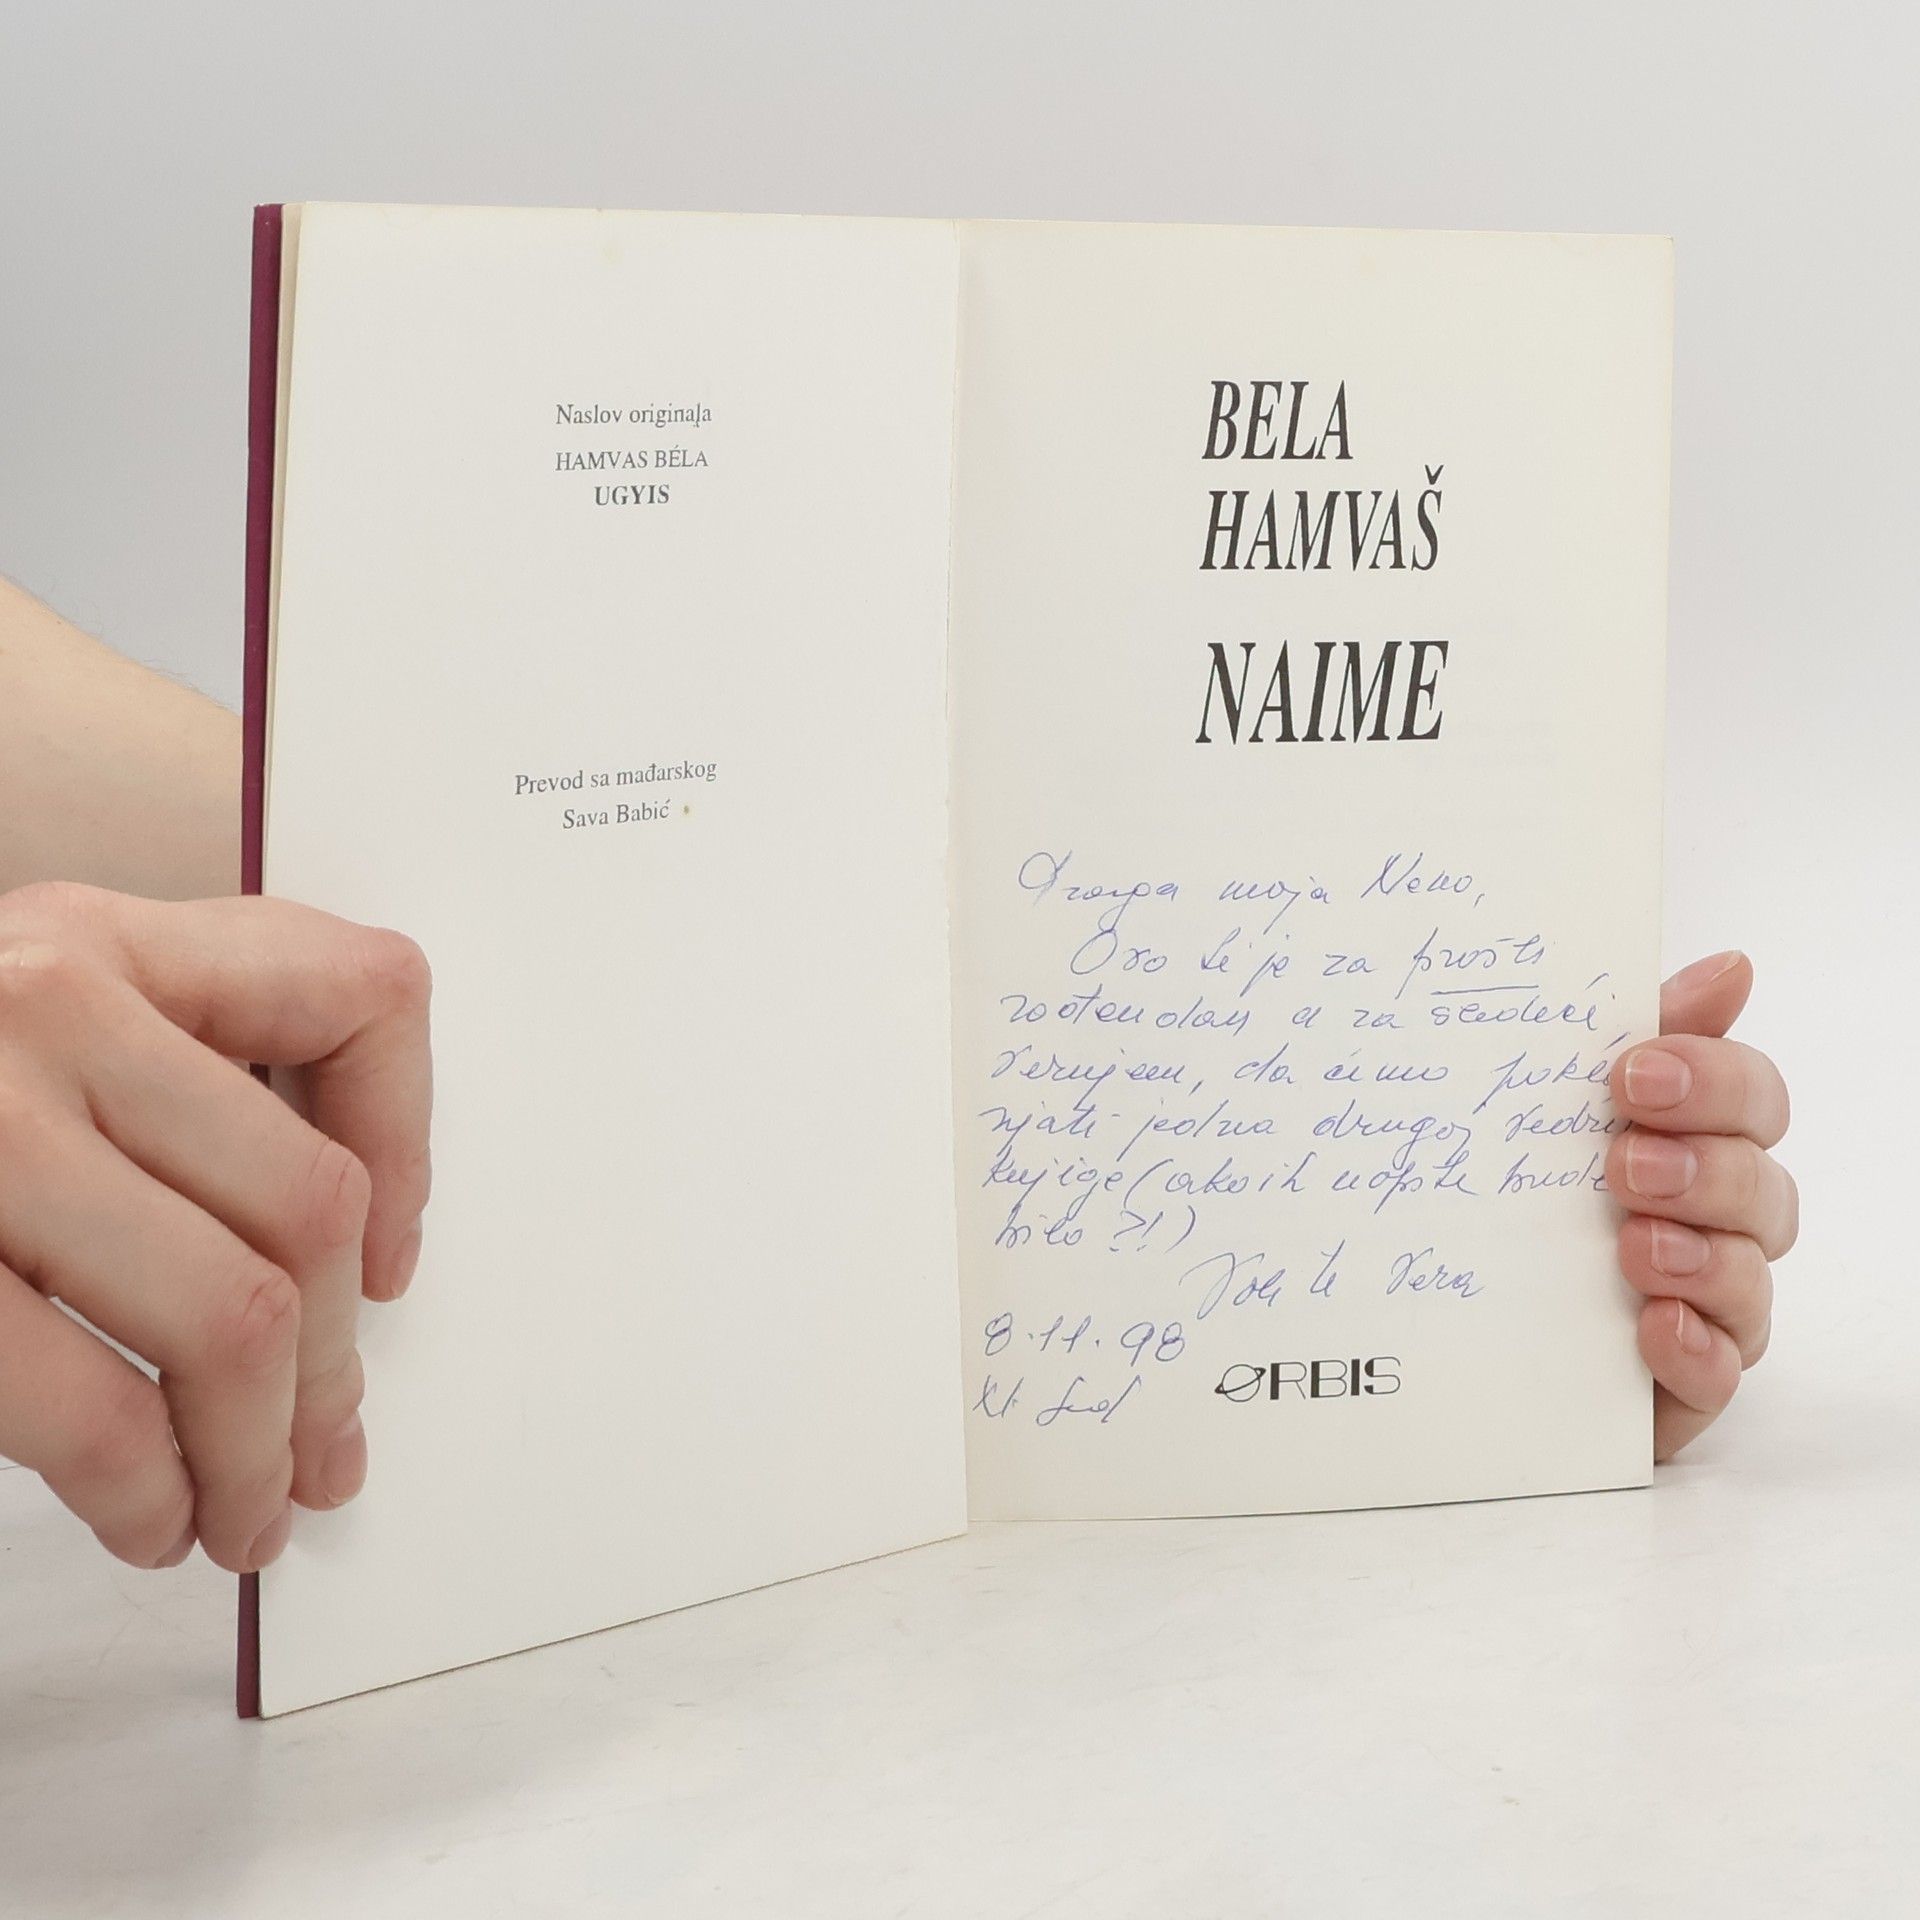 Naslov originala
HAMVAS BÉLA
UGYIS
Prevod sa mađarskog
Sava Babić
BELA
HAMVAŠ
NAIME
Draga moja Neno,
Ovo ti je za prošli
rođendan a za sledeći,
verujem, da ćemo pokla
njati jedna drugoj vedri
knjige (ako ih uopšte bude
bilo ?!)
Voli te Vera
8.11.98
ORBIS